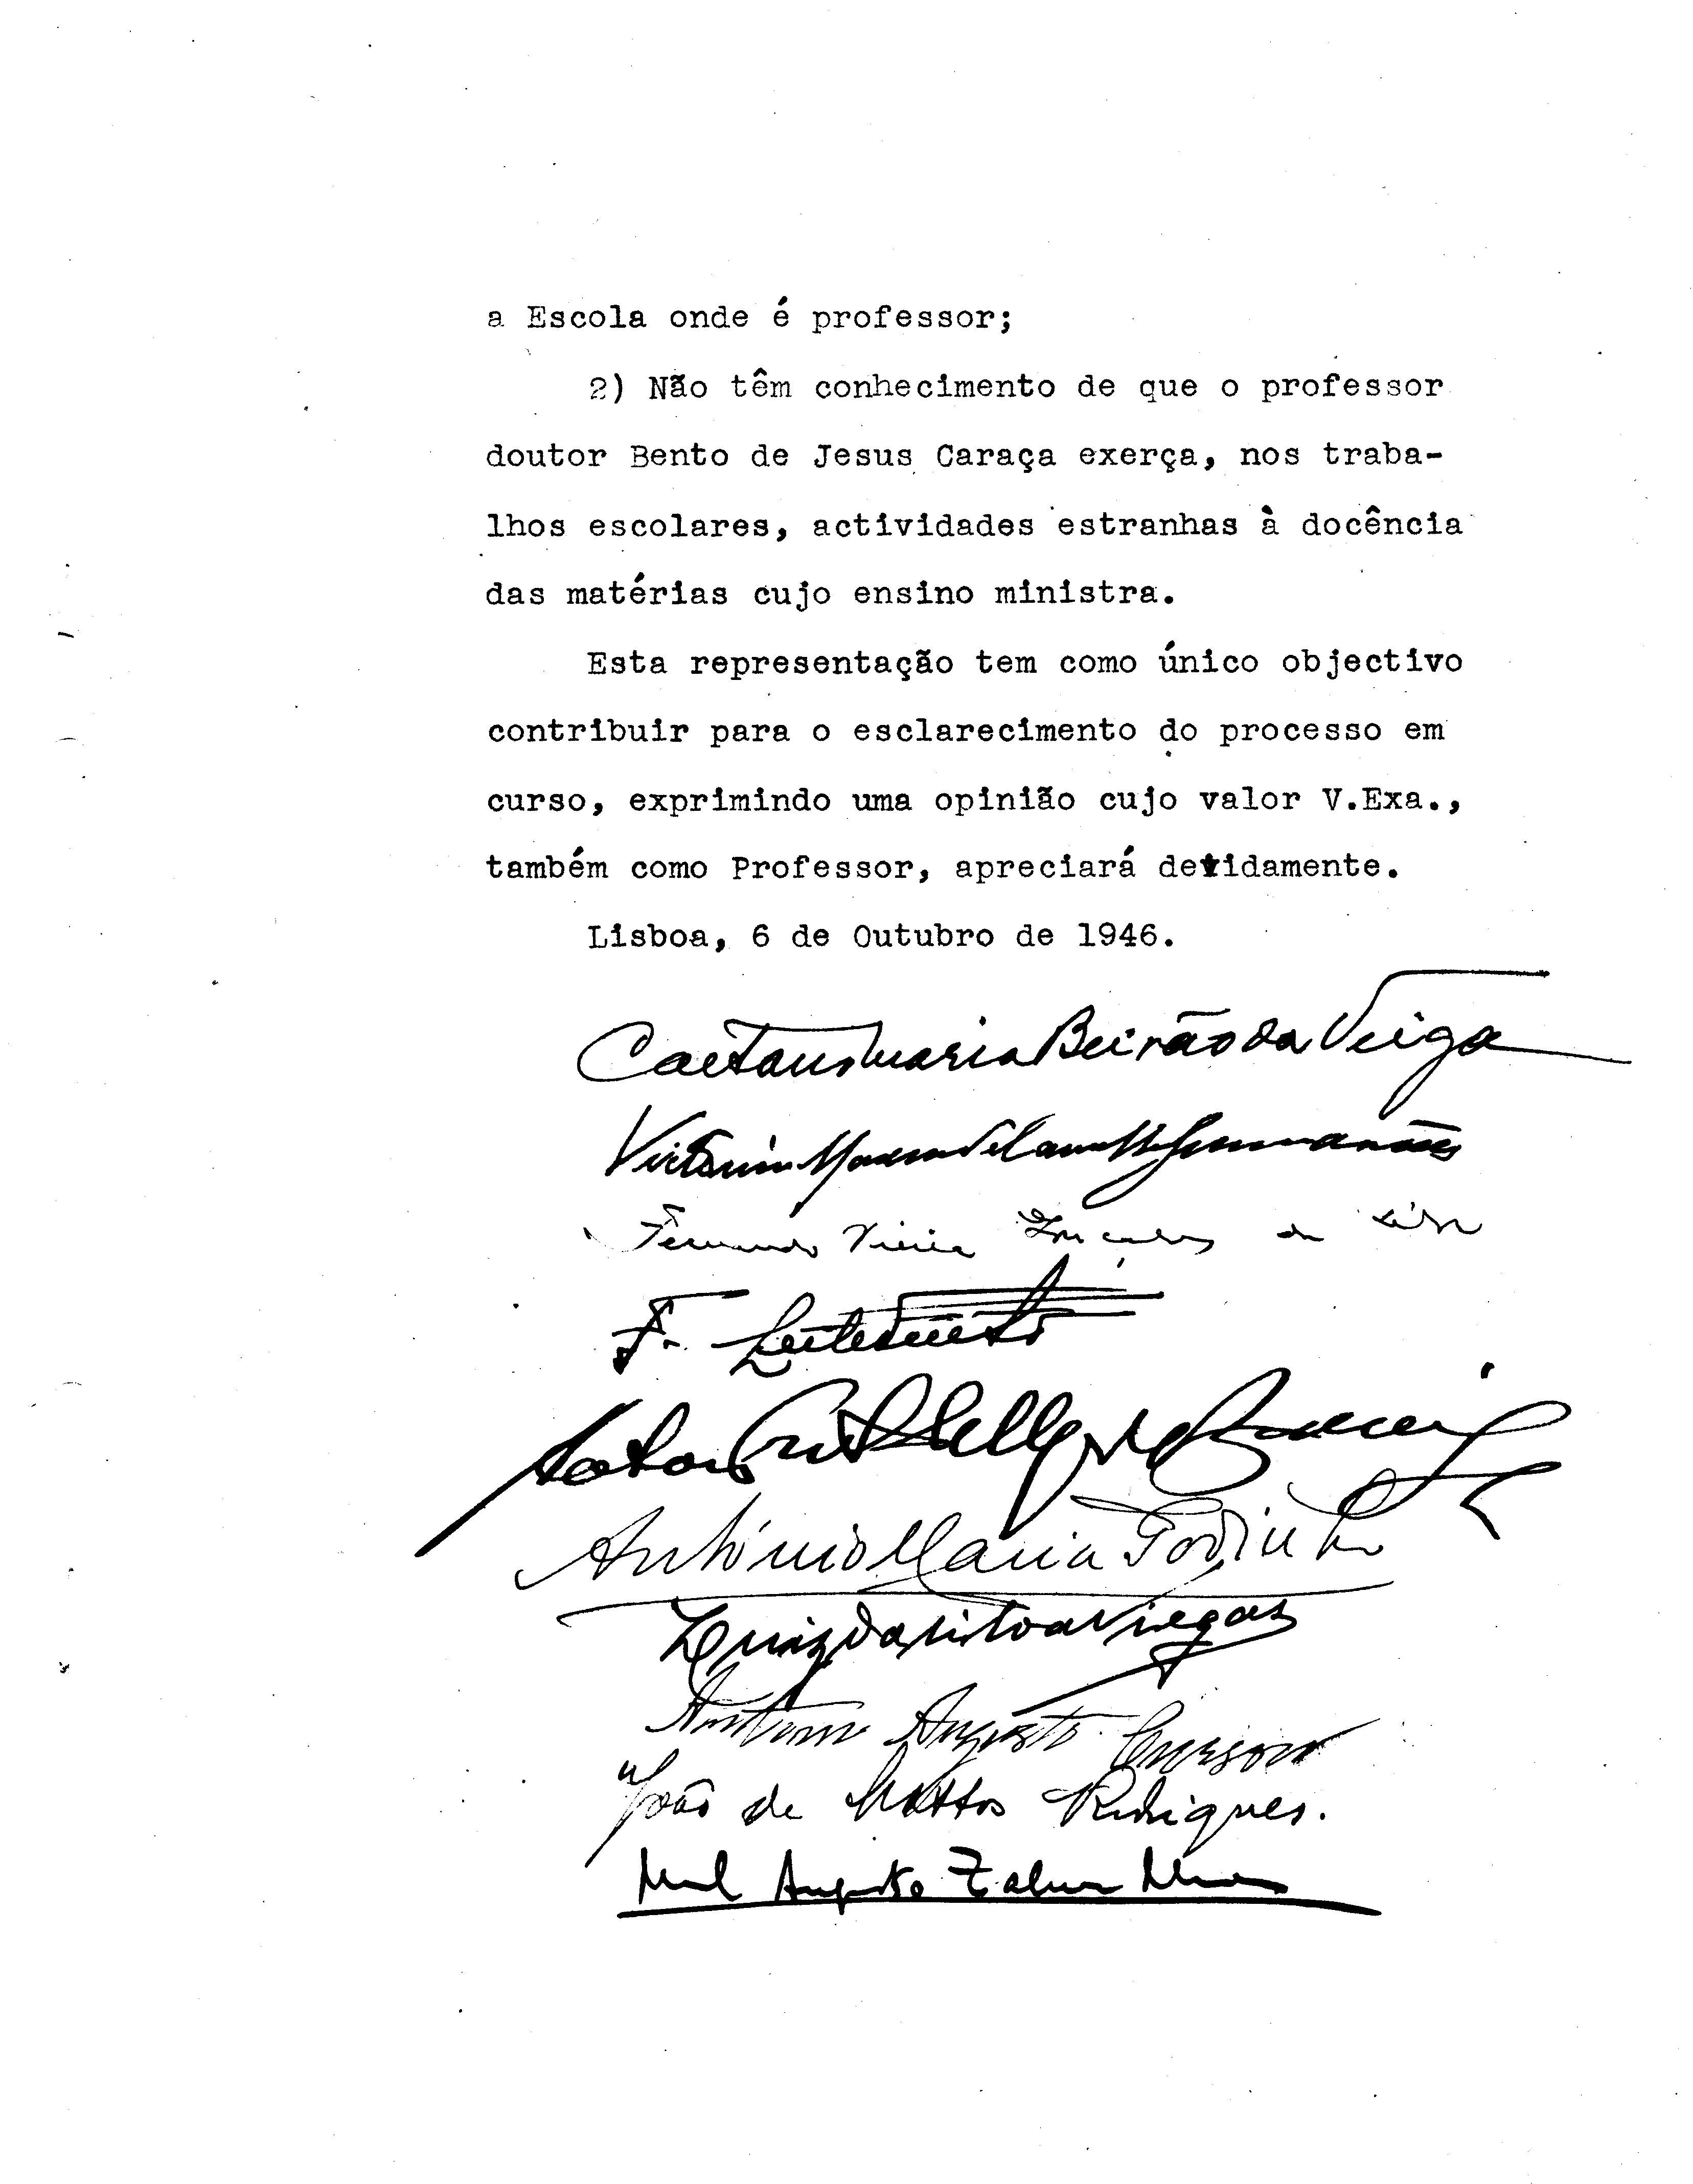 a Escola onde é professor;
2) Não têm conhecimento de que o professor
doutor Bento de Jesus Caraça exerça, nos traba-
lhos escolares, actividades estranhas à docência
das matérias cujo ensino ministra.
Esta representação tem como único objectivo
contribuir para o esclarecimento do processo em
curso, exprimindo uma opinião cujo valor V.Exa.,
também como Professor, apreciará devidamente.
Lisboa, 6 de Outubro de 1946.
Caetano Maria Beirão da Veiga
Guimarães
Fernando Vieira da
F.
António Maria Godinho
Luiz da Silva Viegas
Augusto
João de Mattos Rodrigues.
Augusto